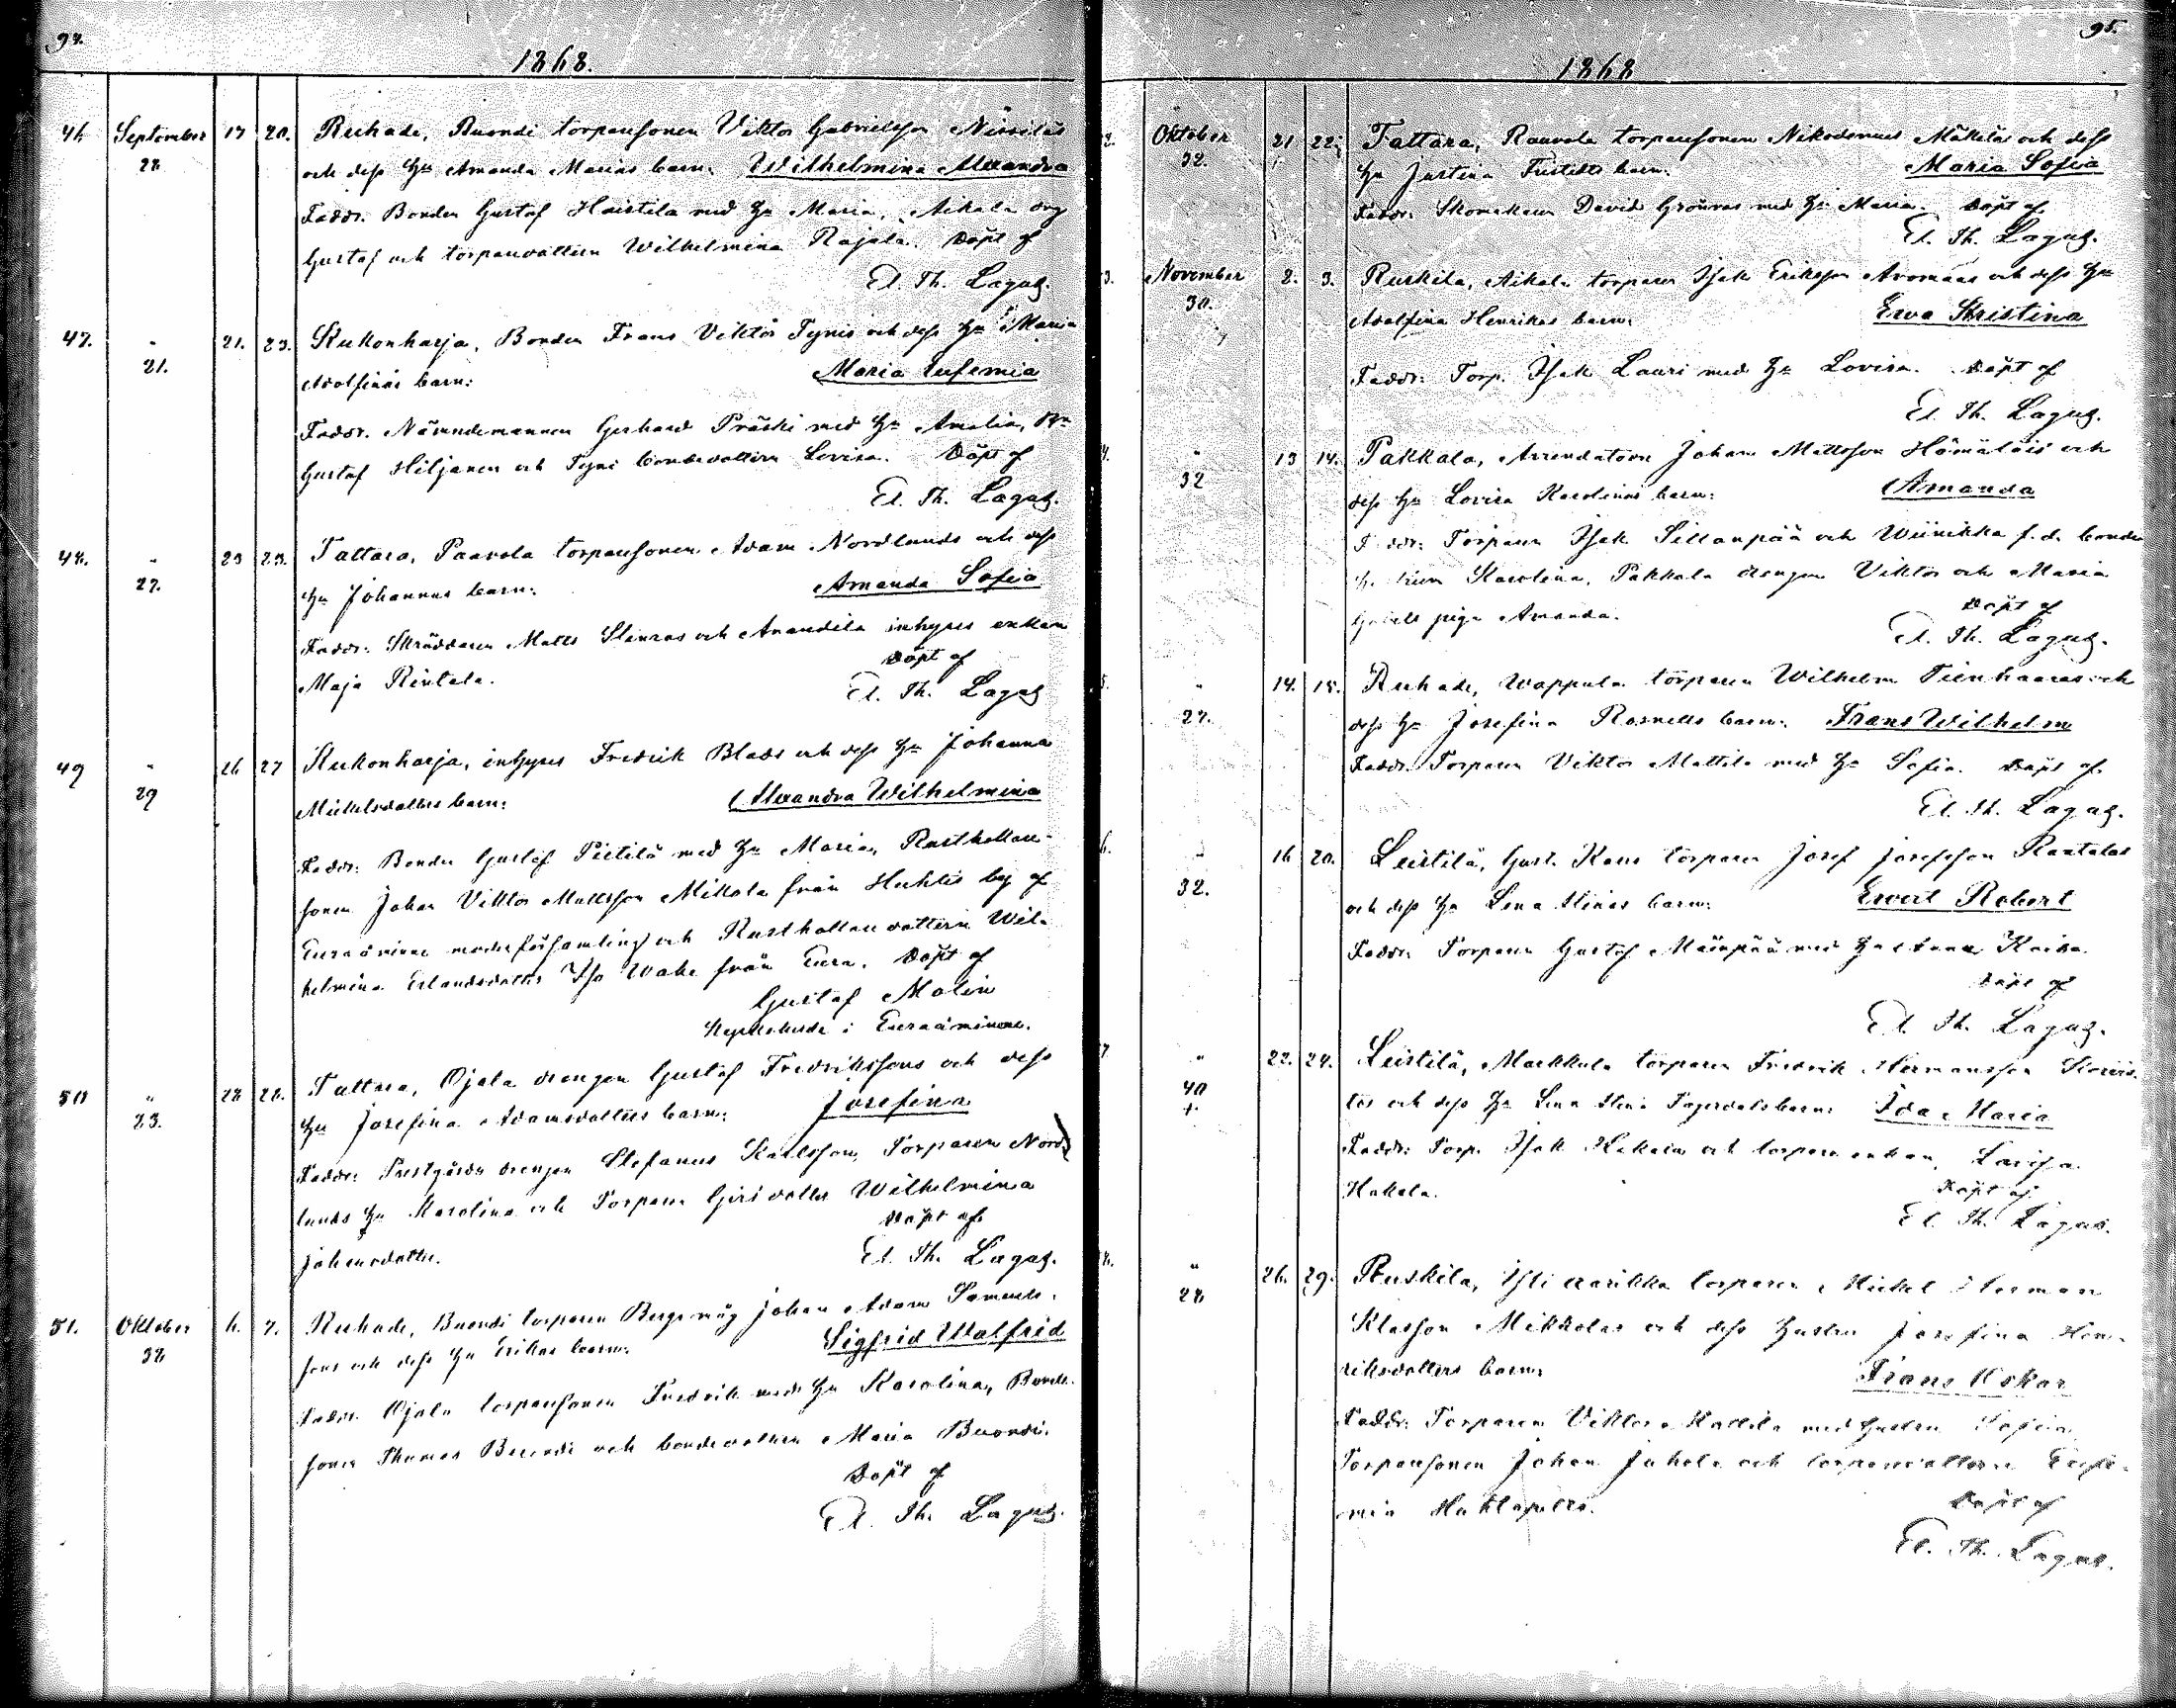 94.
1868.
46. September 17 20. Ruhade, Buondi torparesonen Viktor Gabrielsson Nissilas
28 och dess Hu Amanda Marias barn: Wilhelmina Alexandra
Faddr. Bonden Gustaf Haistela med Hu Maria, Aikala drg
Gustaf och torparedottern Wilhelmina Rajala. Döpt af
El. Th. Lagus.
47. " 21. 23. Kukonharja, Bonden Frans Viktor Tynis och dess Hu Maria
21. Adolfinas barn: Maria Eufemia
Faddr. Nämndemannen Gerhard Präski med Hu Amalia, Bn
Gustaf Hiljanen och Tyni bondedottern Lovisa. Döpt af
El. Th. Lagus.
48. " 23 23. Tattara, Paavola torparesonen Adam Nordlunds och dess
27. Hu Johannas barn: Amanda Sofia
Faddr: Skräddaren Matts Stenros och Anandila inhyses enkan
Maja Rintala. Döpt af
El. Th. Lagus
49 " 26 27 Kukonharja, inhyses Fredrik Blads och dess Hu Johanna
29 Mickelsdotters barn: Alexandra Wilhelmina
Faddr: Bonden Gustaf Pietilä med Hu Maria, Rusthollare-
sonen Johan Viktor Mattsson Mikola från Huhtis by af
Euraåminne moderförsamling och Rusthollaredottern Wil-
helmina Erlandsdotter Iso Wahe från Eura. Döpt af
Gustaf Molin
Kyrkoherde i Euraåminne.
50 " 28 28. Tattara, Ojala drengen Gustaf Fredrikssons och dess
23. Hu Josefina Adamsdotters barn: Josefina
Faddr: Prestgårds drengen Stefanus Karlsson, Torparen Nord-
lunds Hu Karolina och Torpare dotter Wilhelmina
Johansdotter. Döpt af
El. Th. Lagus.
51. Oktober 6. 7. Ruhade, Buondi torparen Bergsmåg Johan Adam Samuels-
38 sons och dess Hu Erikas barn: Sigfrid Walfrid
Faddr. Ojala torparesonen Fredrik med Hu Karolina, Bonde-
sonen Thomas Buondi och bondedottern Maria Buondi.
Döpt af
El. Th. Lagus.
95.
1868
2. Oktober 21 22. Tattara, Raavola torparesonen Nikodemus Mäkeläs och dess
32. Hu Justina Fristedts barn: Maria Sofia
Faddr: Skomakaren David Grönros med Hu Maria. Döpt af
El. Th. Lagus.
3. November 2. 3. Ruskila, Aikala torparen Isak Eriksson Avomaas och dess Hu
30. Adolfina Henrikas barn: Eva Kristina
Faddr: Torp. Isak Lauri med Hu Lovisa. Döpt af
El. Th. Lagus.
4. " 13 14. Pakkala, Arrendatorn Johan Mattsson Hämäläis och
32 dess Hu Lovisa Karolinas barn: Amanda
Faddr: Torparen Isak Sillanpää och Wiinikka f.d. bonde
Karolina, Pakkala drengen Viktor och Maria
piga Amanda. Döpt af
El. Th. Lagus.
5. " 14. 15. Ruhade, Wappula torparen Wilhelm Tienhaaras och
27. dess Hu Josefina Rosnells barn: Frans Wilhelm
Faddr. Torparen Viktor Mattila med Hu Sofia. Döpt af
El. Th. Lagus.
6. " 16 20. Leistilä, Gust. Kaus torparen Josef Josefsson Rantalas
32. och dess Hu Lena Stinas barn: Evert Robert
Faddr: Torparen Gustaf Mäenpää med Hu Anna Kaisa.
Döpt af
El. Th. Lagus.
7. " 22. 24. Leistilä, Markkula torparen Fredrik Hermansson
40 och dess Hu Lena Stina Fagerdals barn: Ida Maria
+
Faddr: Torp. Isak Hakala och torpare enkan, Lovisa
Hakala. Döpt af
El. Th. Lagus.
8. " 26. 29. Ruskila, torparen Mickel Herman
28 Klasson Mikkolas och dess hustru Josefina Hen-
riksdotters barn: Frans Oskar
Faddr: Torparen Viktor Mattila med hustru Sofia
Torparesonen Johan Juhola och torparedottern Eufe-
mia Huhtapelto. Döpt af
El. Th. Lagus.